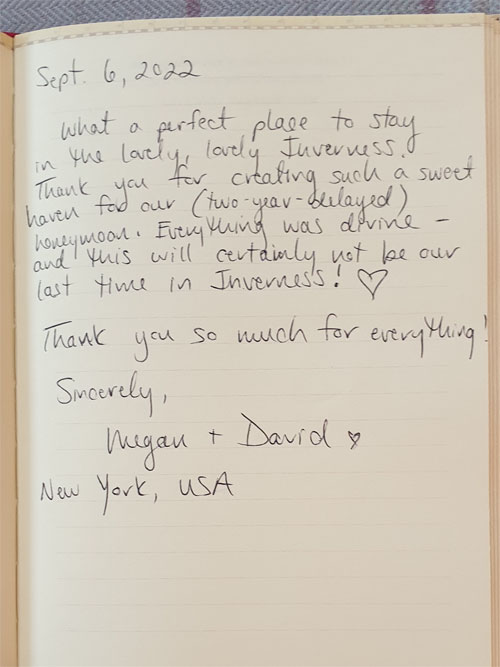 Sept. 6, 2022
What a perfect place to stay
in the lovely, lovely Inverness.
Thank you for creating such a sweet
haven for our (two-year-delayed)
honeymoon. Everything was divine –
and this will certainly not be our
last time in Inverness! ♡
Thank you so much for everything!
Sincerely,
Megan + David ♡
New York, USA